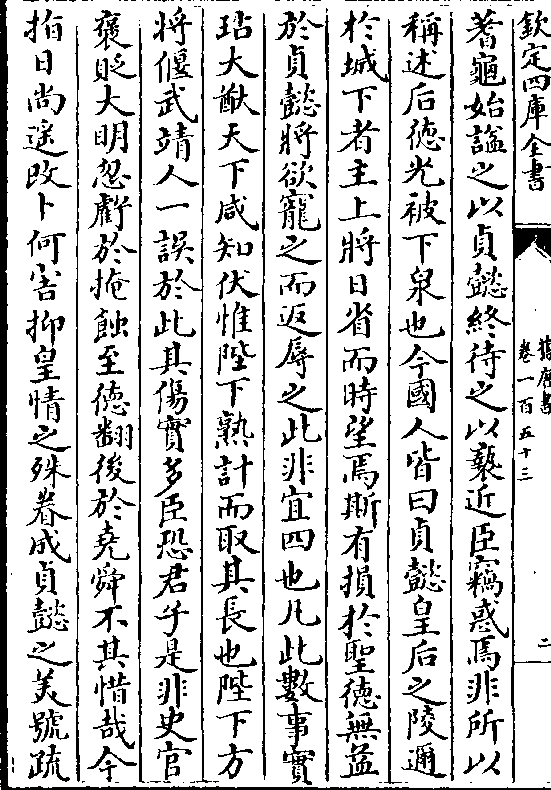 欽定四庫全書
舊唐書
卷一百五十三
二
蓍龜始諡之以貞懿終待之以褻近臣竊惑焉非所以
稱述后徳光被下泉也今國人皆曰貞懿皇后之陵邇
於城下者主上將日省而時望焉斯有損於聖徳無益
於貞懿將欲寵之而返辱之此非宜四也凡此數事實
玷大猷天下咸知伏惟陛下熟計而取其長也陛下方
將偃武靖人一誤於此其傷實多臣恐君子是非史官
褒貶大明忽虧於掩蝕至徳翻後於堯舜不其惜哉今
指日尚遥改卜何害抑皇情之殊眷成貞懿之美號疏